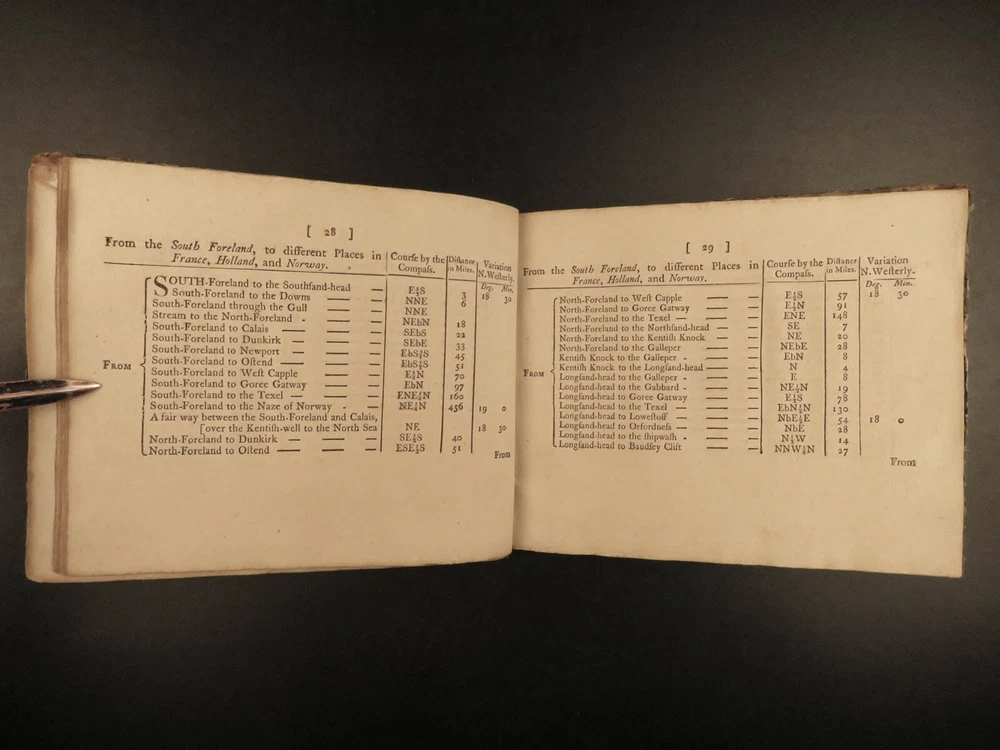 [ 28 ]
From the South Foreland, to different Places in France, Holland, and Norway. | Courſe by the Compaſs. | Diſtance in Miles. | Variation N. Weſterly.
Deg. Min.
SOUTH-Foreland to the Southſand-head — E½S 3 18 30
South-Foreland to the Downs — — NNE 6
South-Foreland through the Gull — — NNE
Stream to the North-Foreland - — — NEbN 18
South-Foreland to Calais — — — SEbS 22
South-Foreland to Dunkirk — — — SEbE 33
South-Foreland to Newport — — EbS½S 45
South-Foreland to Oſtend — — — EbS½S 51
FROM
South-Foreland to Weſt Capple — — E¼N 70
South-Foreland to Goree Gatway — — EbN 97
South-Foreland to the Texel — — — ENE¼N 160
South-Foreland to the Naze of Norway - — NE¼N 456 19 0
A fair way between the South-Foreland and Calais,
[over the Kentiſh-well to the North Sea NE 18 30
North-Foreland to Dunkirk — — — SE¼S 40
North-Foreland to Oſtend — — — ESE½S 51
From
[ 29 ]
From the South Foreland, to different Places in France, Holland, and Norway. | Courſe by the Compaſs. | Diſtance in Miles. | Variation N. Weſterly.
Deg. Min.
North-Foreland to Weſt Capple — — E½S 57 18 30
North-Foreland to Goree Gatway — — E½N 91
North-Foreland to the Texel — — — ENE 148
North-Foreland to the Northſand-head — — SE 7
North-Foreland to the Kentiſh Knock — — NE 20
North-Foreland to the Galleper — — NEbE 28
Kentiſh Knock to the Galleper - — — EbN 8
FROM
Kentiſh Knock to the Longſand-head — — N 4
Longſand-head to the Galleper - — — E 8
Longſand-head to the Gabbard - — — NE½N 19
Longſand-head to Goree Gatway — — E½S 78
Longſand-head to the Texel — — — EbN¾N 130
Longſand-head to Loweſtoff — — — NbE½E 54 18 0
Longſand-head to Orfordneſs — — — NbE 28
Longſand-head to the ſhipwaſh - — — N½W 14
Longſand-head to Baudſey Clift — — NNW¾N 27
From